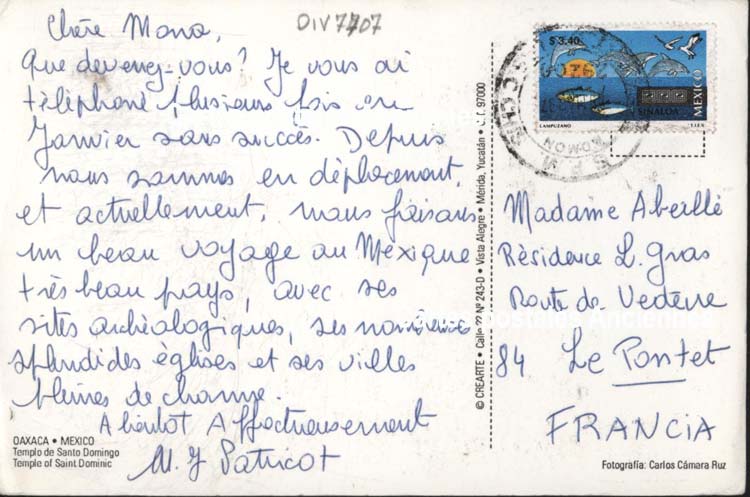 DIV7707
Chère Mona,
Que devenez-vous? Je vous ai
téléphoné plusieurs fois en
Janvier sans succès. Depuis
nous sommes en déplacement,
et actuellement, nous faisons
un beau voyage au Mexique
très beau pays, avec ses
sites archéologiques, ses
splendides églises et ses villes
pleines de charme.
A bientôt Affectueusement
M. J Patricot
OAXACA • MEXICO
Templo de Santo Domingo
Temple of Saint Dominic
© CREARTE • Calle 22 Nº 243-D • Vista Alegre • Mérida, Yucatán • C.P. 97000
$ 3.40
MEXICO
SINALOA
LAMPUZANO
T.I.E.V.
Madame Abeillé
Résidence L. Gras
Route de Vedène
84 Le Pontet
FRANCIA
Fotografía: Carlos Cámara Ruz